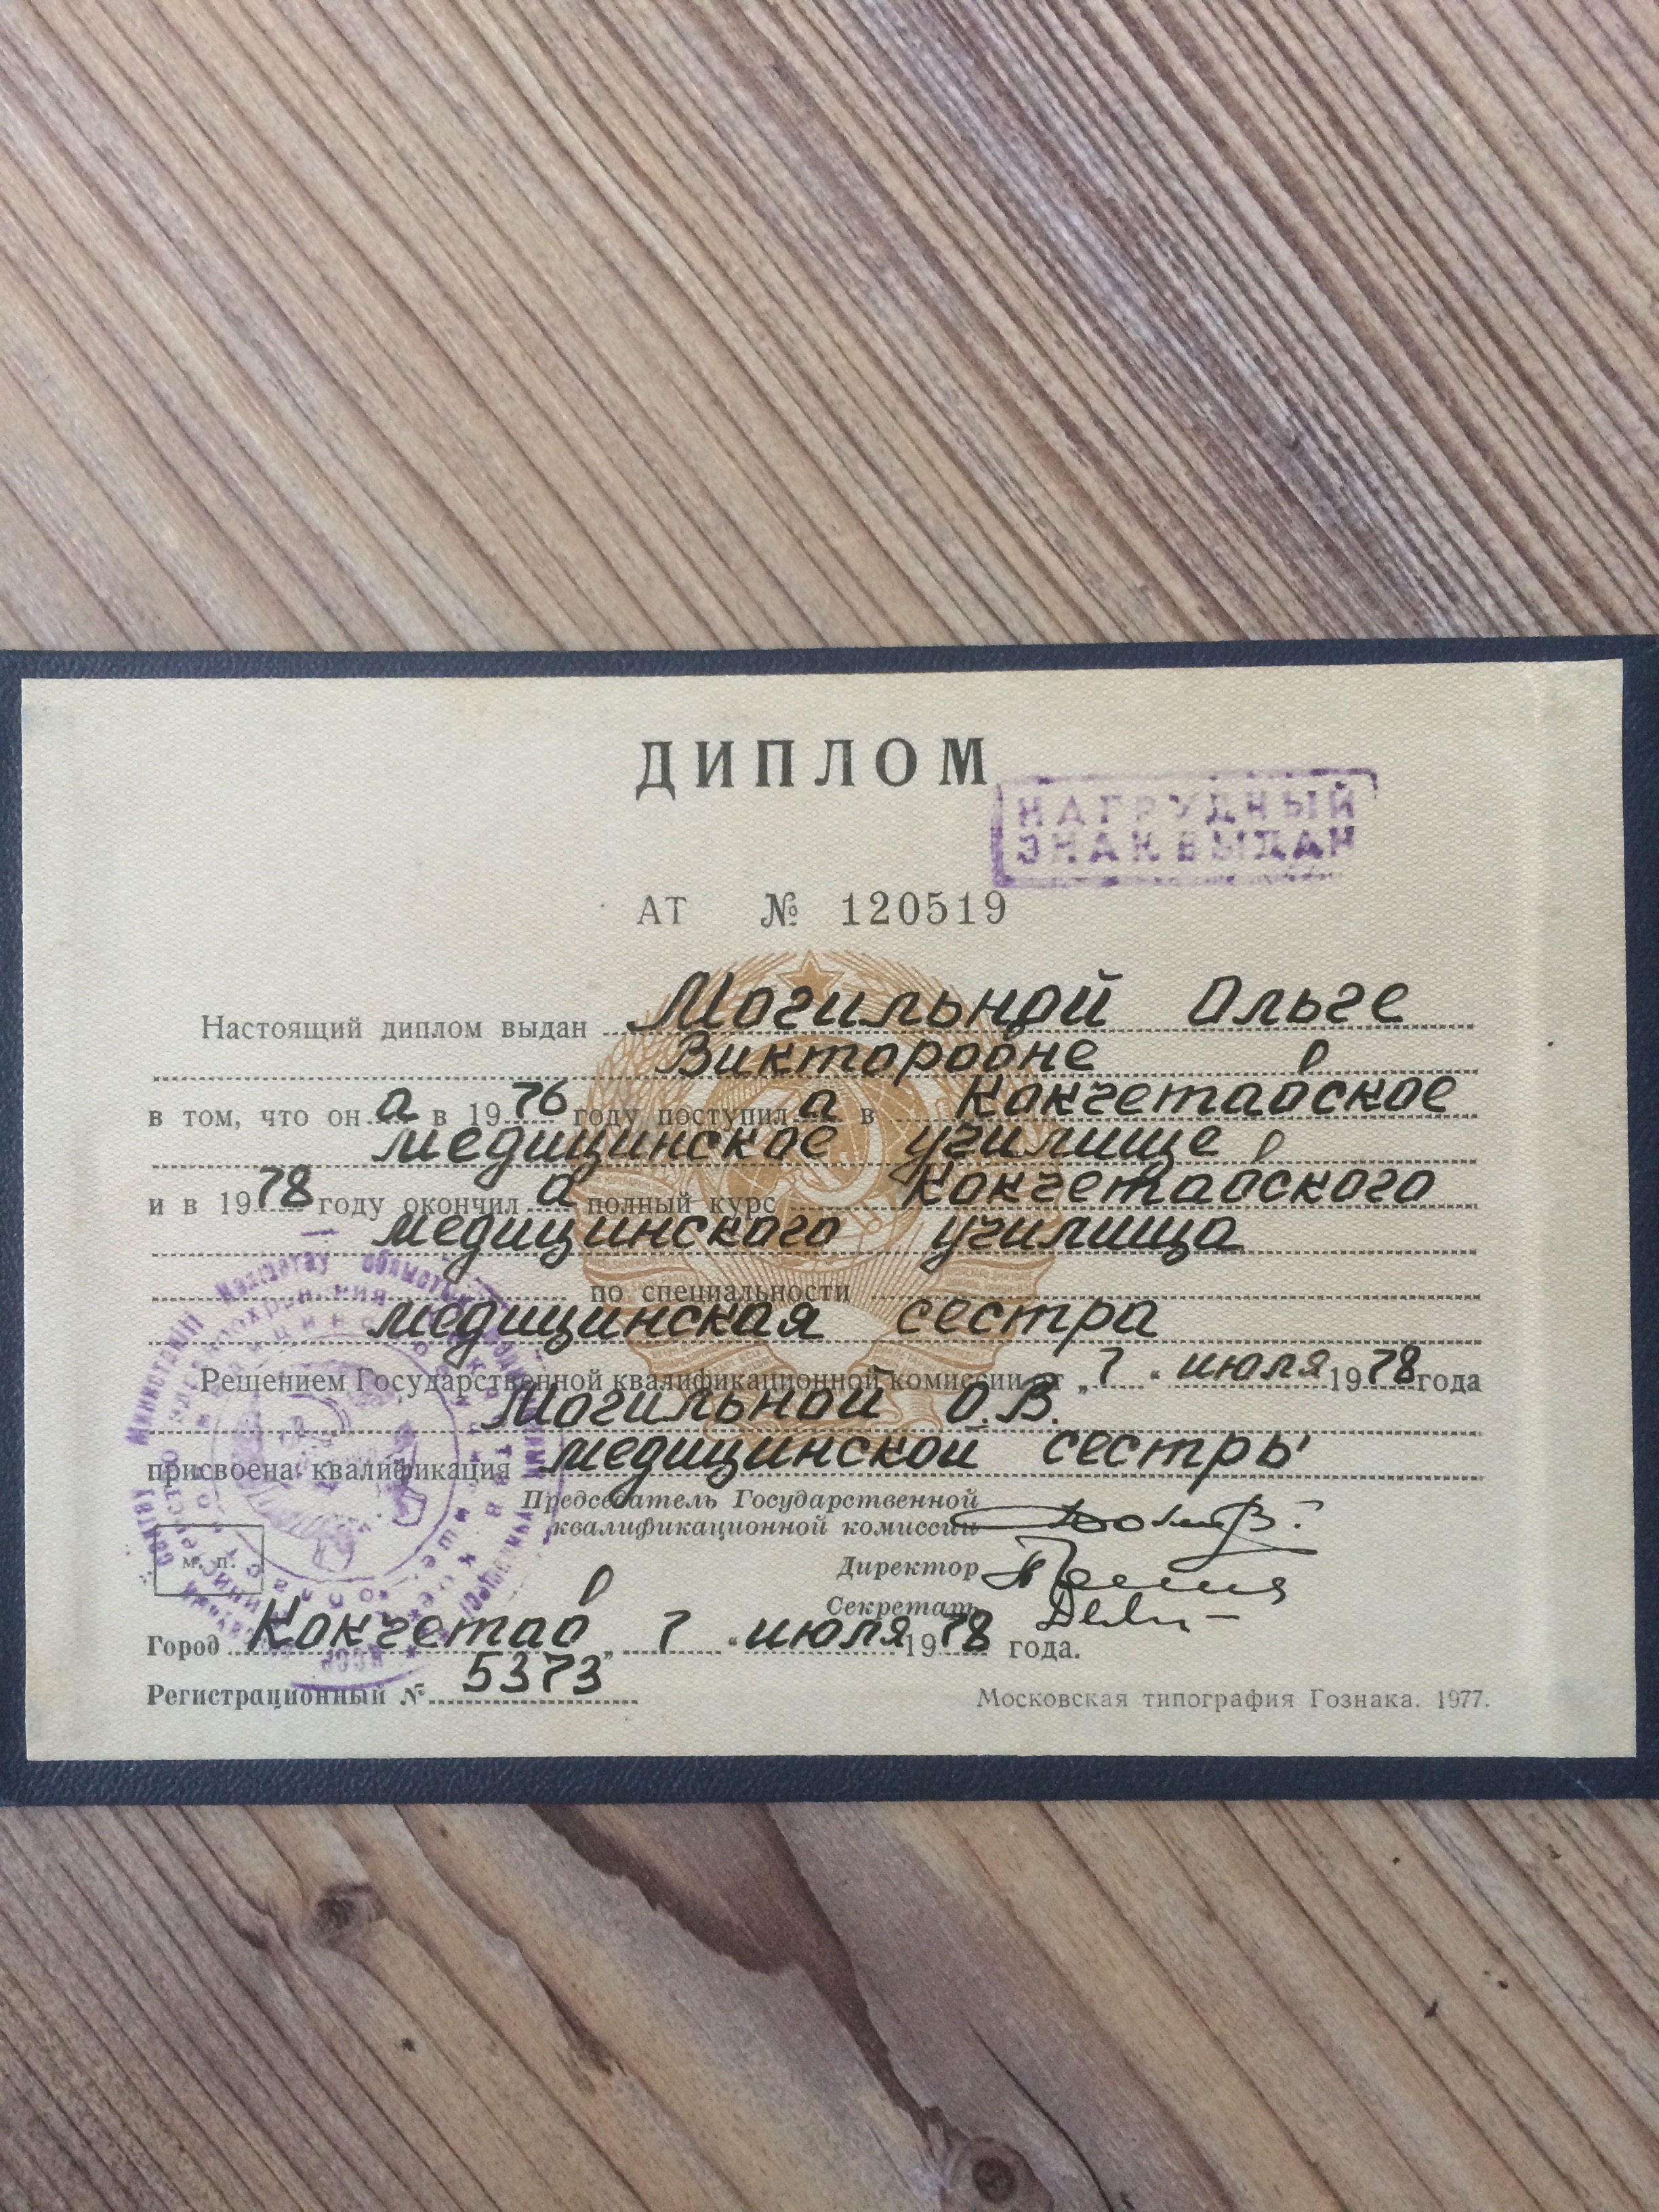 ДИПЛОМ
НАГРУДНЫЙ
ЗНАК ВЫДАН
АТ № 120519
Настоящий диплом выдан Могильной Ольге
Викторовне
в том, что он а в 1976 году поступил а в Кокчетавское
медицинское училище
и в 1978 году окончил а полный курс Кокчетавского
медицинского училища
по специальности
медицинская сестра
Решением Государственной квалификационной комиссии от „7“ июля 1978 года
Могильной О.В.
присвоена квалификация медицинской сестры
Председатель Государственной
квалификационной комиссии
Директор
Секретарь
м. п.
Город Кокчетав „7“ июля 1978 года.
Регистрационный № 5373
Московская типография Гознака. 1977.